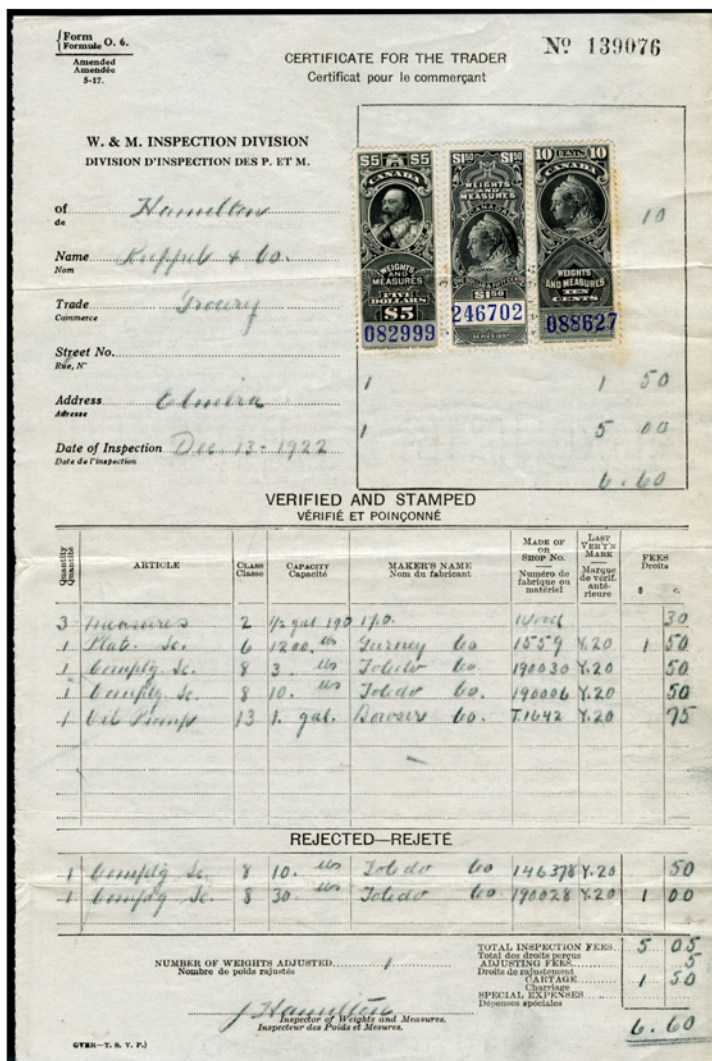 Form
Formule O. 6.
Amended
Amendée
5-17.
CERTIFICATE FOR THE TRADER
Certificat pour le commerçant
Nº 139076
W. & M. INSPECTION DIVISION
DIVISION D'INSPECTION DES P. ET M.
of Hamilton
de
Name & Co.
Nom
Trade Grocery
Commerce
Street No.
Rue, Nº
Address Elmira
Adresse
Date of Inspection Dec. 13 - 1922
Date de l'inspection
$5 $5
CANADA
WEIGHTS
AND
MEASURES
FIVE
DOLLARS
$5
082999
$1.50 $1.50
WEIGHTS
AND
MEASURES
CANADA
ONE DOLLAR & FIFTY CENTS
$1.50
246702
SERIES 1897
10 CENTS 10
CANADA
WEIGHTS
AND MEASURES
TEN
CENTS
088627
10
1 1 50
1 5 00
6.60
VERIFIED AND STAMPED
VÉRIFIÉ ET POINÇONNÉ
Quantity
Quantité
ARTICLE
CLASS
Classe
CAPACITY
Capacité
MAKER'S NAME
Nom du fabricant
MADE OF
OR
SHOP NO.
Numéro de
fabrique ou
matériel
LAST
VER'T'N
MARK
Marque
de vérif.
anté-
rieure
FEES
Droits
$ c.
3 Measures 2 1/2 gal Wood 30
1 Plat. Sc. 6 1200. lbs Gurney Co 1559 Y.20 1 50
1 Comptg Sc. 8 3. lbs Toledo Co. 190030 Y.20 50
1 Comptg Sc. 8 10. lbs Toledo Co. 190006 Y.20 50
1 Oil Pump 13 1. gal. Bowser Co. T.1642 Y.20 75
REJECTED—REJETÉ
1 Comptg Sc. 8 10. lbs Toledo Co 146378 Y.20 50
1 Comptg Sc. 8 30. lbs Toledo Co 190028 Y.20 1 00
NUMBER OF WEIGHTS ADJUSTED 1
Nombre de poids rajustés
TOTAL INSPECTION FEES 5 05
Total des droits perçus
ADJUSTING FEES 5
Droits de rajustement
CARTAGE 1 50
Charriage
SPECIAL EXPENSES
Dépenses spéciales
6.60
J Hamilton
Inspector of Weights and Measures.
Inspecteur des Poids et Mesures.
OVER—T. S. V. P.)